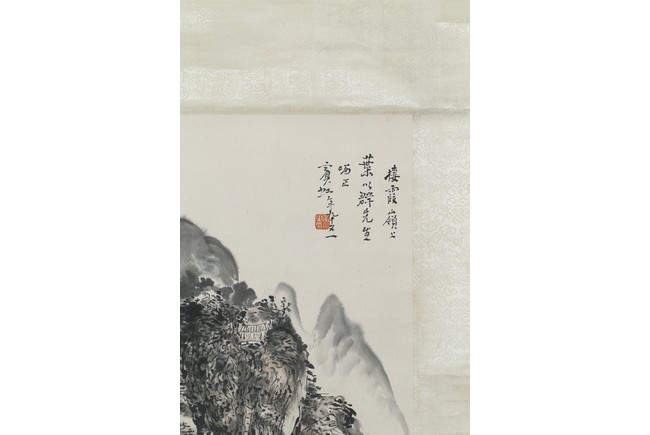 棲霞嶺上
葉以群先生
喝正
賓虹年九十一